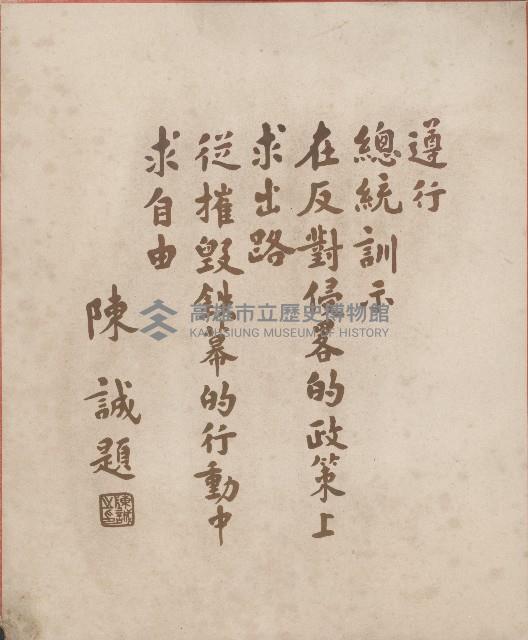 遵行
總統訓示
在反對侵畧的政策上
求出路
從摧毀鉄幕的行動中
求自由
陳誠題
高雄市立歷史博物館
KAOHSIUNG MUSEUM OF HISTORY